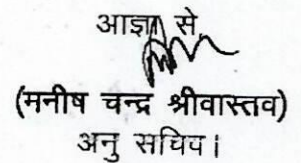 आज्ञा से,
(मनीष चन्द्र श्रीवास्तव)
अनु सचिव।